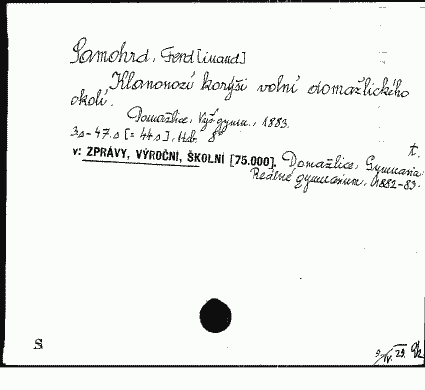 Samohrd, Ferd[inand]
Klanonozí korýši volní domažlického
okolí.
Domažlice, Vyš. gymn., 1883.
3s-47.s [= 44s], 8°
t.
v: ZPRÁVY, VÝROČNÍ, ŠKOLNÍ [75.000]. Domažlice, Gymnasia
Reálné gymnasium, 1882-83.
S